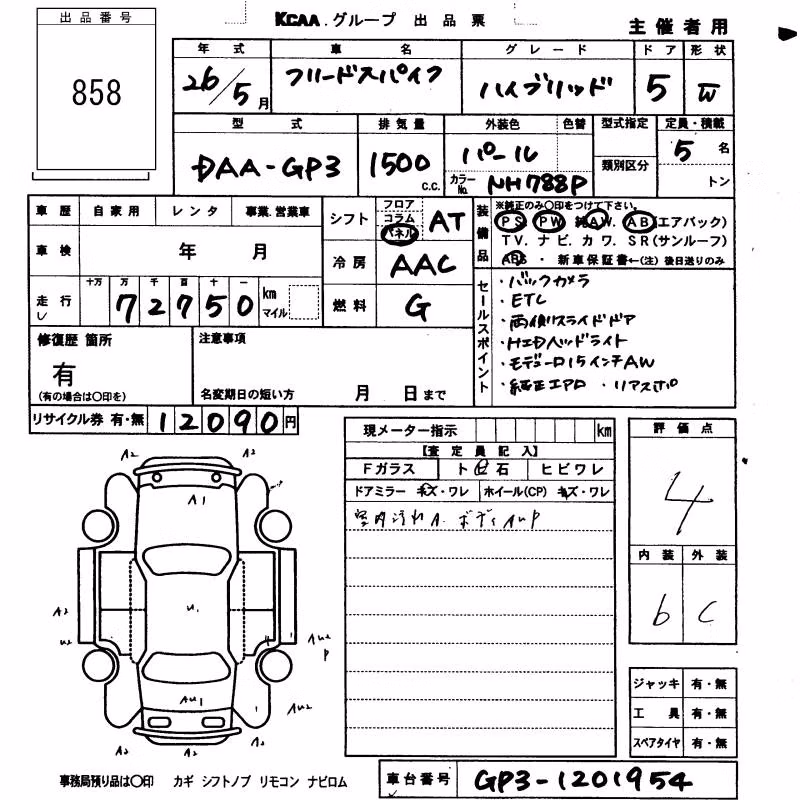 出品番号
858
KCAA.グループ 出品票
主催者用
年式 車名 グレード ドア 形状
26/5月 フリードスパイク ハイブリッド 5 W
型式 排気量 外装色 色替 型式指定 定員・積載
DAA-GP3 1500 C.C. パール 類別区分 5 名
カラーNo. NH788P トン
車歴 自家用 レンタ 事業.営業車
シフト フロア コラム パネル AT
装備品 ※純正のみ○印をつけて下さい。
PS. PW. 純AW. AB(エアバック)
TV. ナビ. カワ. SR(サンルーフ)
ABS ・ 新車保証書←(注) 後日送りのみ
車検 年 月
冷房 AAC
走行 十万 万 千 百 十 一
72750 km マイル
燃料 G
セールスポイント
・バックカメラ
・ETC
・両側スライドドア
・HIDヘッドライト
・モデューロ15インチAW
・純正エアロ ・リアスポ
修復歴 箇所
有
(有の場合は○印を)
注意事項
名変期日の短い方 月 日まで
リサイクル券 有・無 12090円
現メーター指示 km
【査定員記入】
Fガラス ト ビ 石 ヒビワレ
ドアミラー キズ・ワレ ホイール(CP) キズ・ワレ
室内汚れA. ボディAUP
評価点
4
内装 外装
b C
A2 A2
A1
U1
A2
W2
AU2
P
AU1
AU2
A2 A2
ジャッキ 有・無
工具 有・無
スペアタイヤ 有・無
事務局預り品は○印 カギ シフトノブ リモコン ナビロム
車台番号 GP3-1201954